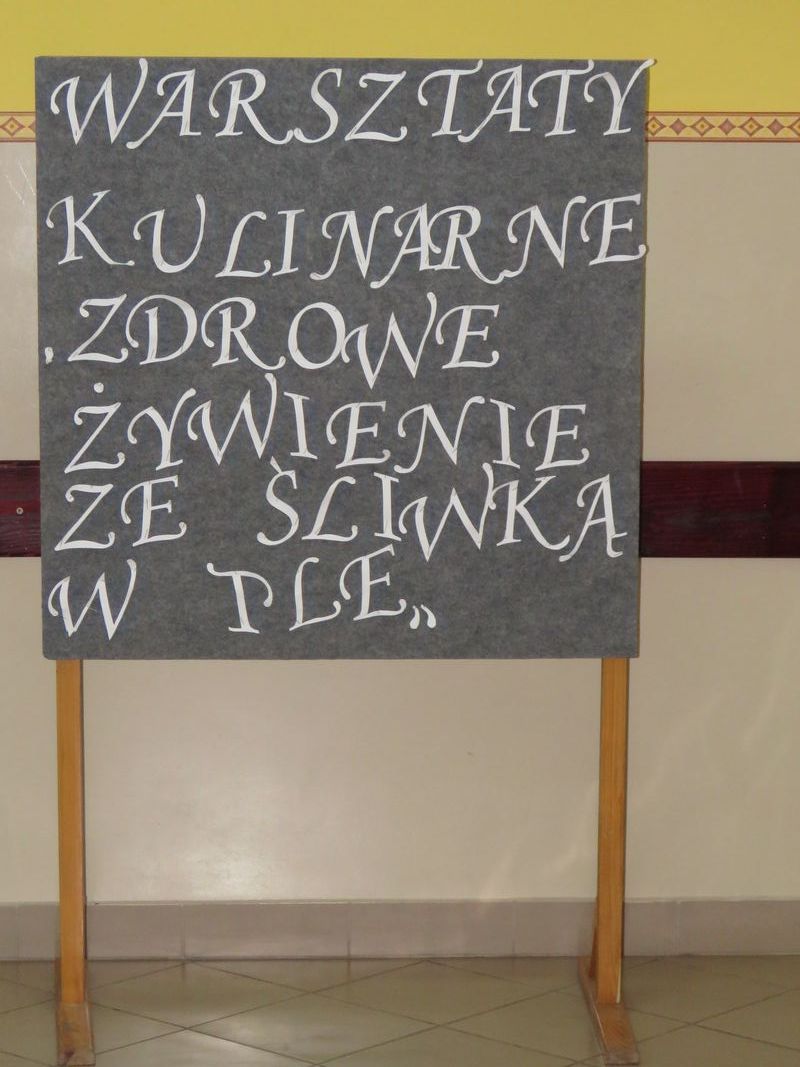 WARSZTATY
KULINARNE
,ZDROWE
ŻYWIENIE
ZE ŚLIWKĄ
W TLE„